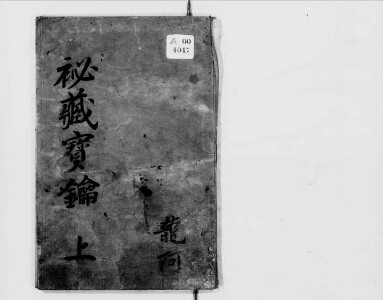 祕藏寶鑰 上
龍阿
A 00
4047